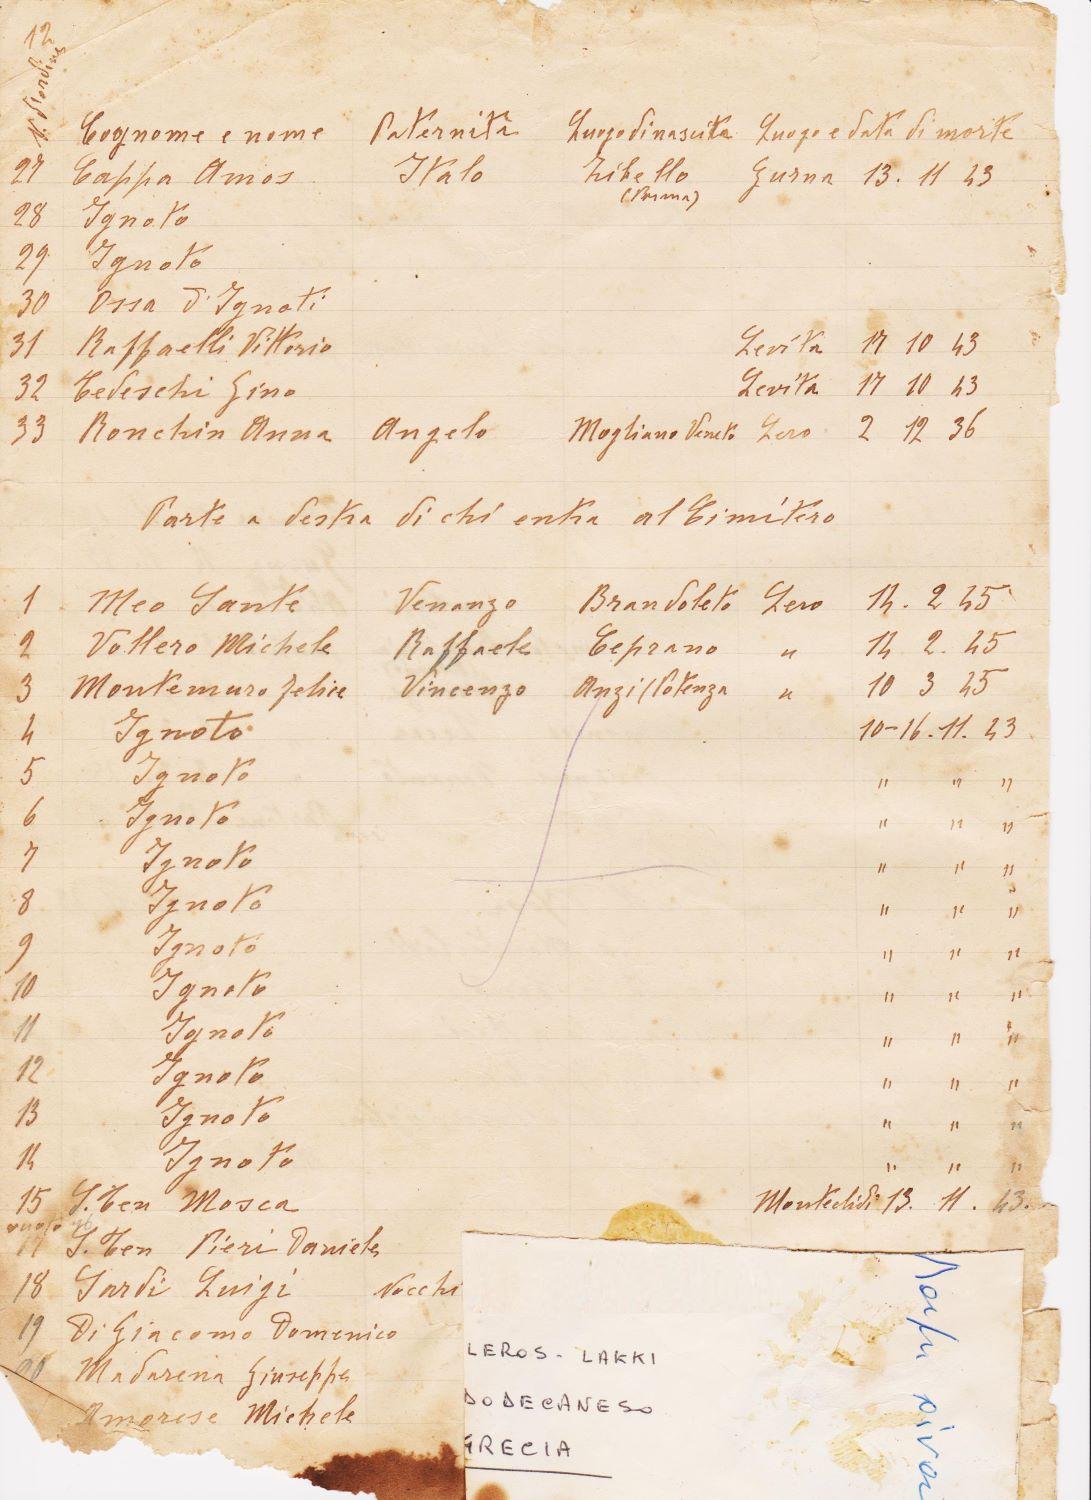 12
N° di ordine
Cognome e nome Paternità Luogo di nascita Luogo e data di morte
27 Cappa Amos Italo Zibello Gurna 13. 11 43
(Parma)
28 Ignoto
29 Ignoto
30 Ossa d'Ignoti
31 Raffaelli Vittorio Levita 17 10 43
32 Tedeschi Gino Levita 17 10 43
33 Ronchin Anna Angelo Mogliano Veneto Lero 2 12 36
Parte a destra di chi entra al Cimitero
1 Meo Sante Venanzo Brandoleto Lero 14. 2 45
2 Vollero Michele Raffaele Ceprano " 14 2. 45
3 Montemuro Felice Vincenzo Anzi (Potenza " 10 3 45
4 Ignoto 10-16. 11. 43
5 Ignoto " " "
6 Ignoto " " "
7 Ignoto " " "
8 Ignoto " " "
9 Ignoto " " "
10 Ignoto " " "
11 Ignoto " " "
12 Ignoto " " "
13 Ignoto " " "
14 Ignoto " " "
15 S. Ten Mosca Monteclidi 13. 11. 43.
17 S. Ten Pieri Daniele
18 Sardi Luigi Nocchi
19 Di Giacomo Domenico
20 Madarena Giuseppe
Amorese Michele
LEROS - LAKKI
DODECANESO
GRECIA